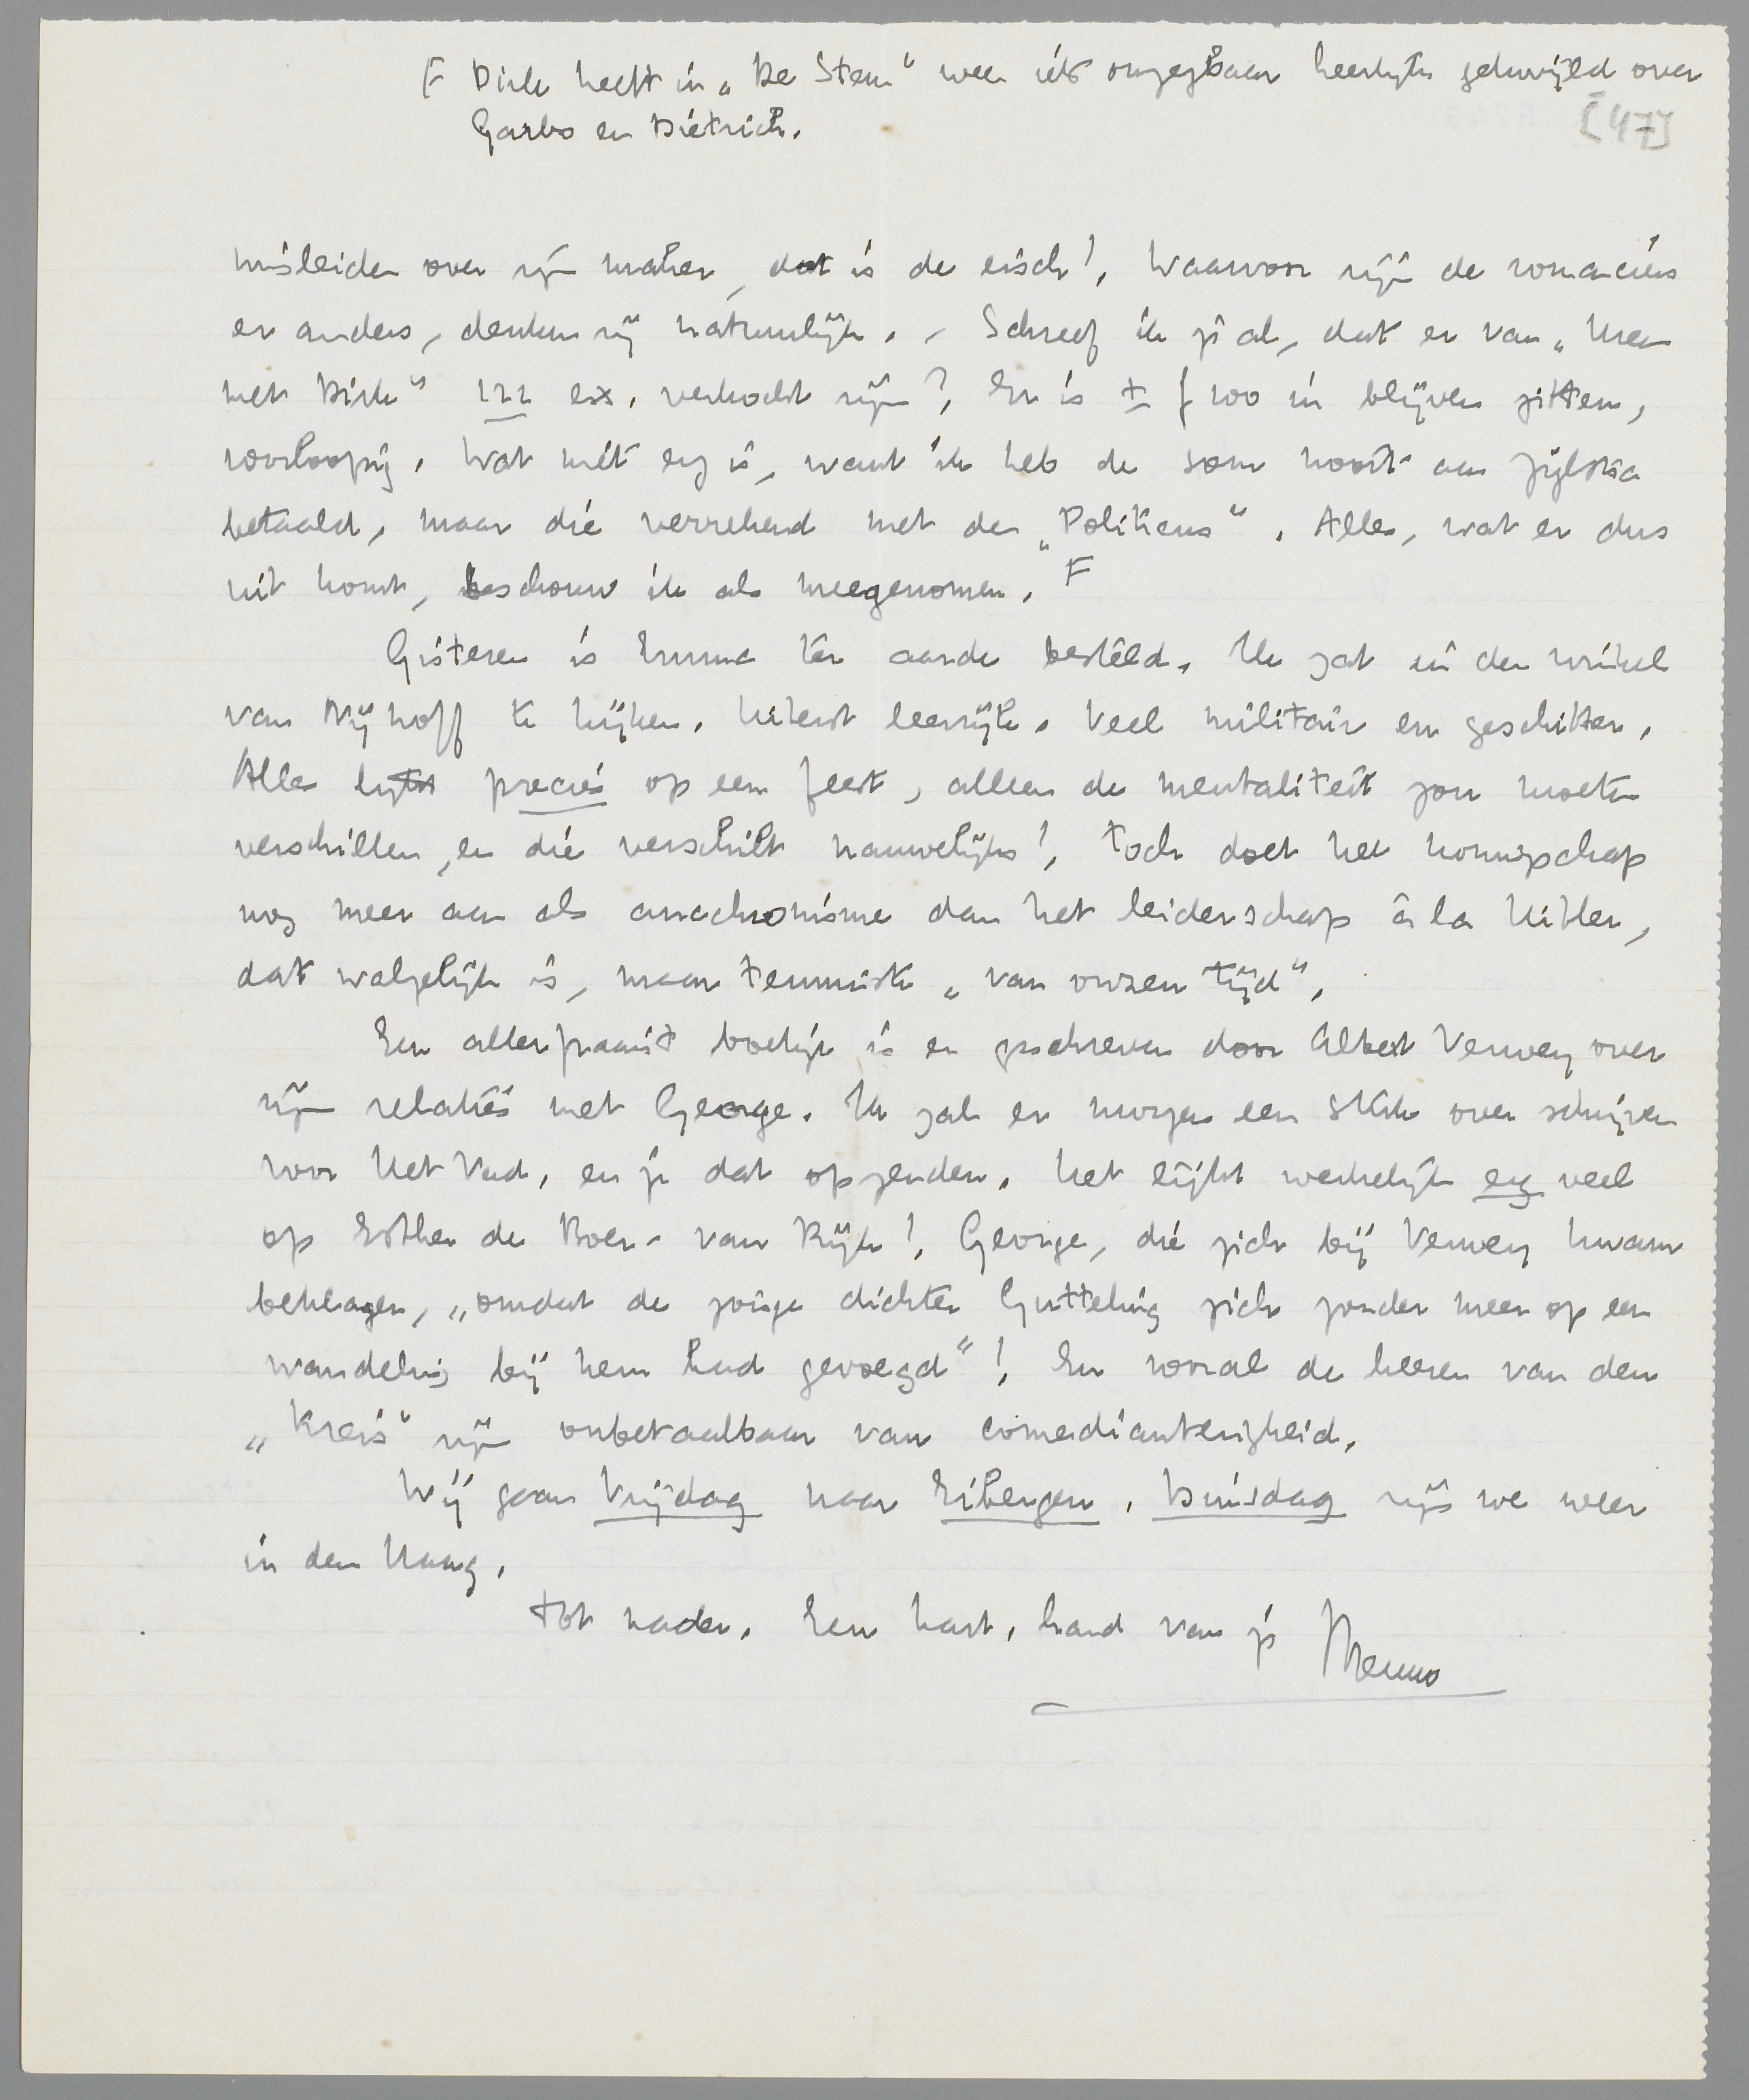 F Dirk heeft in „De Stem" weer iets onzegbaar heerlijks gekwijld over
Garbo en Dietrich.
[47]
misleiden over zijn maker, dat is de eisch! Waarvoor zijn de romanciers
er anders, denken zij natuurlijk. – Schreef ik je al, dat er van „Men
met Dirk" 122 ex. verkocht zijn? Er is ± f 100 in blijven zitten,
voorloopig. Wat niet erg is, want ik heb de som nooit aan Zijlstra
betaald, maar die verrekend met den „Politicus". Alles, wat er dus
uit komt, beschouw ik als meegenomen. F
Gisteren is Emma ter aarde besteld. Ik zat in den winkel
van Nijhoff te kijken. Uiterst leerrijk. Veel militair en geschitter.
Alles lijkt precies op een feest, alleen de mentaliteit zou moeten
verschillen, en die verschilt nauwelijks! Toch doet het koningschap
nog meer aan als anachronisme dan het leiderschap à la Hitler,
dat walgelijk is, maar tenminste „van onzen tijd".
Een allerfraaist boekje is er geschreven door Albert Verwey over
zijn relaties met George. Ik zal er morgen een stuk over schrijven
voor Het Vad. en je dat opzenden. Het lijkt werkelijk erg veel
op Esther de Boer - van Rijk! George, die zich bij Verwey kwam
beklagen, „omdat de jonge dichter Gutteling zich zonder meer op een
wandeling bij hem had gevoegd"! En vooral de heeren van den
„Kreis" zijn onbetaalbaar van comedianterigheid.
Wij gaan Vrijdag naar Eibergen. Dinsdag zijn we weer
in den Haag.
Tot nader. Een hart. hand van je Menno